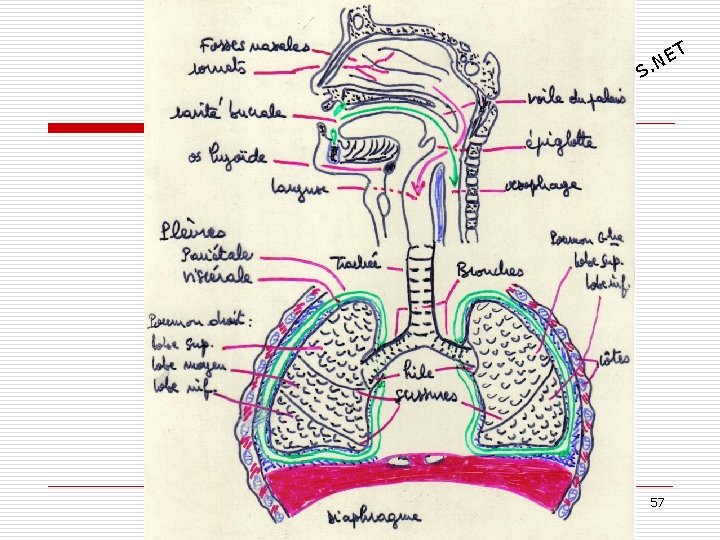 Fosses nasales
cornets
cavité buccale
os hyoïde
larynx
voile du palais
épiglotte
œsophage
Plèvres
Pariétale
viscérale
Trachée
Bronches
Poumon Gche
lobe sup.
lobe inf.
Poumon droit:
lobe sup.
lobe moyen
lobe inf.
hile
scissures
côtes
diaphragme
S.NET
57